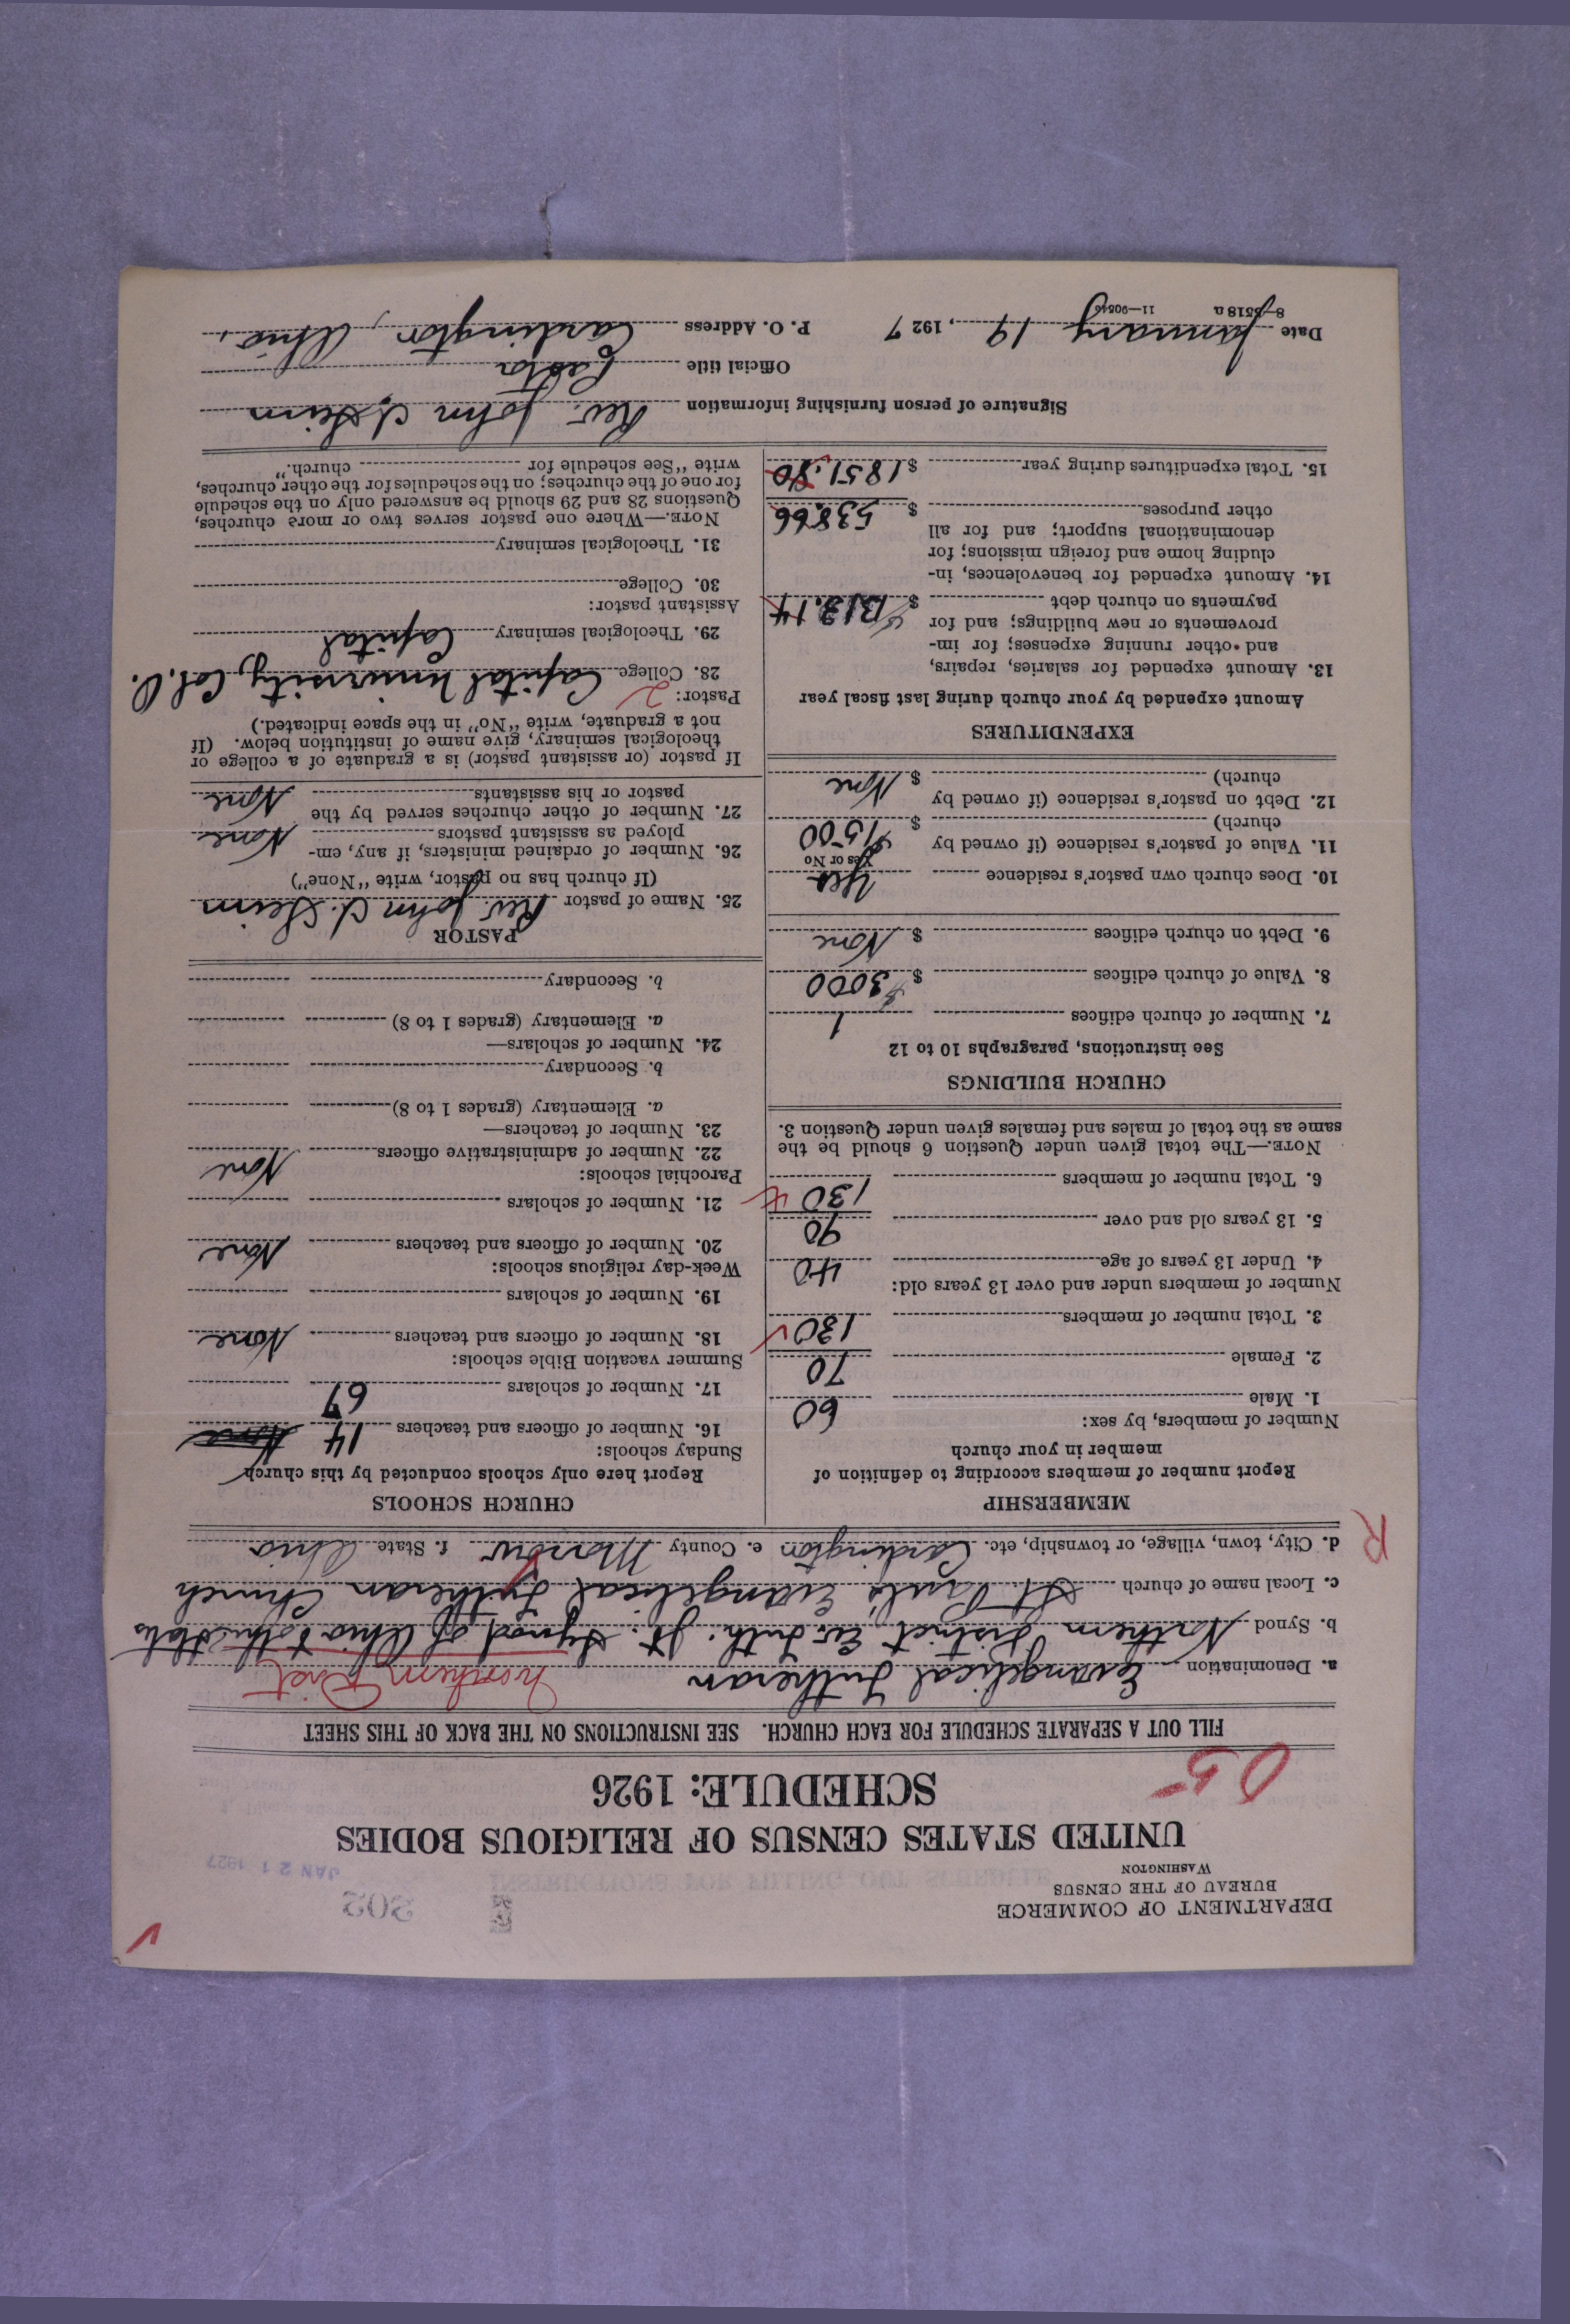 DEPARTMENT OF COMMERCE
BUREAU OF THE CENSUS
WASHINGTON
JAN 21 1927
UNITED STATES CENSUS OF RELIGIOUS BODIES
SCHEDULE: 1926
05
FILL OUT A SEPARATE SCHEDULE FOR EACH CHURCH. SEE INSTRUCTIONS ON THE BACK OF THIS SHEET
a. Denomination Evangelical Lutheran Northern Dist
b. Synod Northern District, Ev. Luth. Jt. Synod of Ohio & other States
c. Local name of church St. Paul's Evangelical Lutheran Church
d. City, town, village, or township, etc. Cardington e. County Morrow f. State Ohio
R
MEMBERSHIP
Report number of members according to definition of
member in your church
Number of members, by sex:
1. Male 60
2. Female 70
3. Total number of members 130
Number of members under and over 13 years old:
4. Under 13 years of age 40
5. 13 years old and over 90
6. Total number of members 130
NOTE.—The total given under Question 6 should be the
same as the total of males and females given under Question 3.
CHURCH BUILDINGS
See instructions, paragraphs 10 to 12
7. Number of church edifices 1
8. Value of church edifices $ 3000
9. Debt on church edifices $ None
10. Does church own pastor's residence Yes
Yes or No
11. Value of pastor's residence (if owned by
church) $ 1500
12. Debt on pastor's residence (if owned by
church) $ None
EXPENDITURES
Amount expended by your church during last fiscal year
13. Amount expended for salaries, repairs,
and other running expenses; for im-
provements or new buildings; and for
payments on church debt $ 1313.14
14. Amount expended for benevolences, in-
cluding home and foreign missions; for
denominational support; and for all
other purposes $ 538.66
15. Total expenditures during year $ 1851.80
CHURCH SCHOOLS
Report here only schools conducted by this church
Sunday schools:
16. Number of officers and teachers 14 None
17. Number of scholars 67
Summer vacation Bible schools:
18. Number of officers and teachers None
19. Number of scholars
Week-day religious schools:
20. Number of officers and teachers None
21. Number of scholars
Parochial schools:
22. Number of administrative officers None
23. Number of teachers—
a. Elementary (grades 1 to 8)
b. Secondary
24. Number of scholars—
a. Elementary (grades 1 to 8)
b. Secondary
PASTOR
25. Name of pastor Rev. John
(If church has no pastor, write "None")
26. Number of ordained ministers, if any, em-
ployed as assistant pastors None
27. Number of other churches served by the
pastor or his assistants None
If pastor (or assistant pastor) is a graduate of a college or
theological seminary, give name of institution below. (If
not a graduate, write "No" in the space indicated.)
Pastor: 2
28. College Capital University, Col. O.
29. Theological seminary Capital
Assistant pastor:
30. College
31. Theological seminary
NOTE.—Where one pastor serves two or more churches,
Questions 28 and 29 should be answered only on the schedule
for one of the churches; on the schedules for the other churches,
write "See schedule for church."
Signature of person furnishing information Rev. John
Official title Pastor
Date January 19, 1927 P. O. Address Cardington, Ohio.
8-5518 a